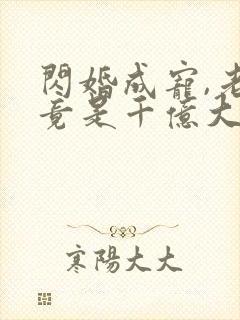 閃婚成寵,老
竟是千億大
寒陽大大